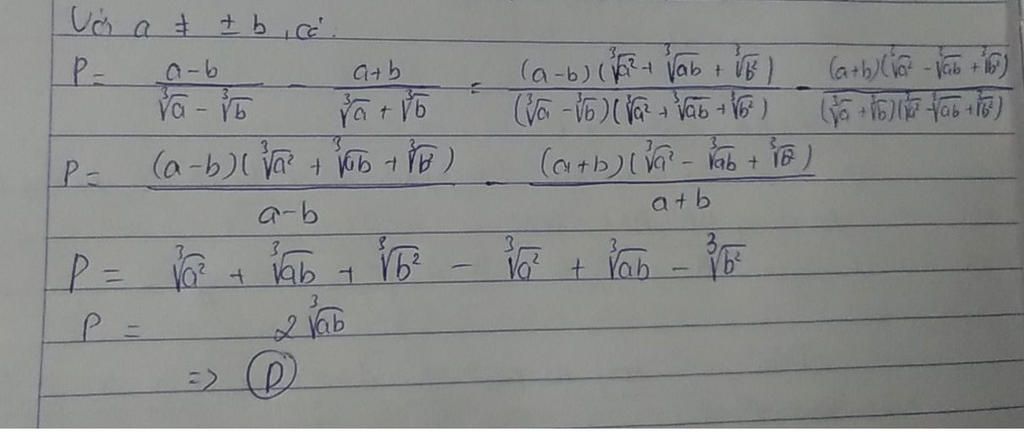 Với a ≠ ± b , có:
P = \frac{a-b}{\sqrt[3]{a} - \sqrt[3]{b}} - \frac{a+b}{\sqrt[3]{a} + \sqrt[3]{b}} = \frac{(a-b)(\sqrt[3]{a^2} + \sqrt[3]{ab} + \sqrt[3]{b^2})}{(\sqrt[3]{a} - \sqrt[3]{b})(\sqrt[3]{a^2} + \sqrt[3]{ab} + \sqrt[3]{b^2})} - \frac{(a+b)(\sqrt[3]{a^2} - \sqrt[3]{ab} + \sqrt[3]{b^2})}{(\sqrt[3]{a} + \sqrt[3]{b})(\sqrt[3]{a^2} - \sqrt[3]{ab} + \sqrt[3]{b^2})}
P = \frac{(a-b)(\sqrt[3]{a^2} + \sqrt[3]{ab} + \sqrt[3]{b^2})}{a-b} - \frac{(a+b)(\sqrt[3]{a^2} - \sqrt[3]{ab} + \sqrt[3]{b^2})}{a+b}
P = \sqrt[3]{a^2} + \sqrt[3]{ab} + \sqrt[3]{b^2} - \sqrt[3]{a^2} + \sqrt[3]{ab} - \sqrt[3]{b^2}
P = 2\sqrt[3]{ab}
=> D